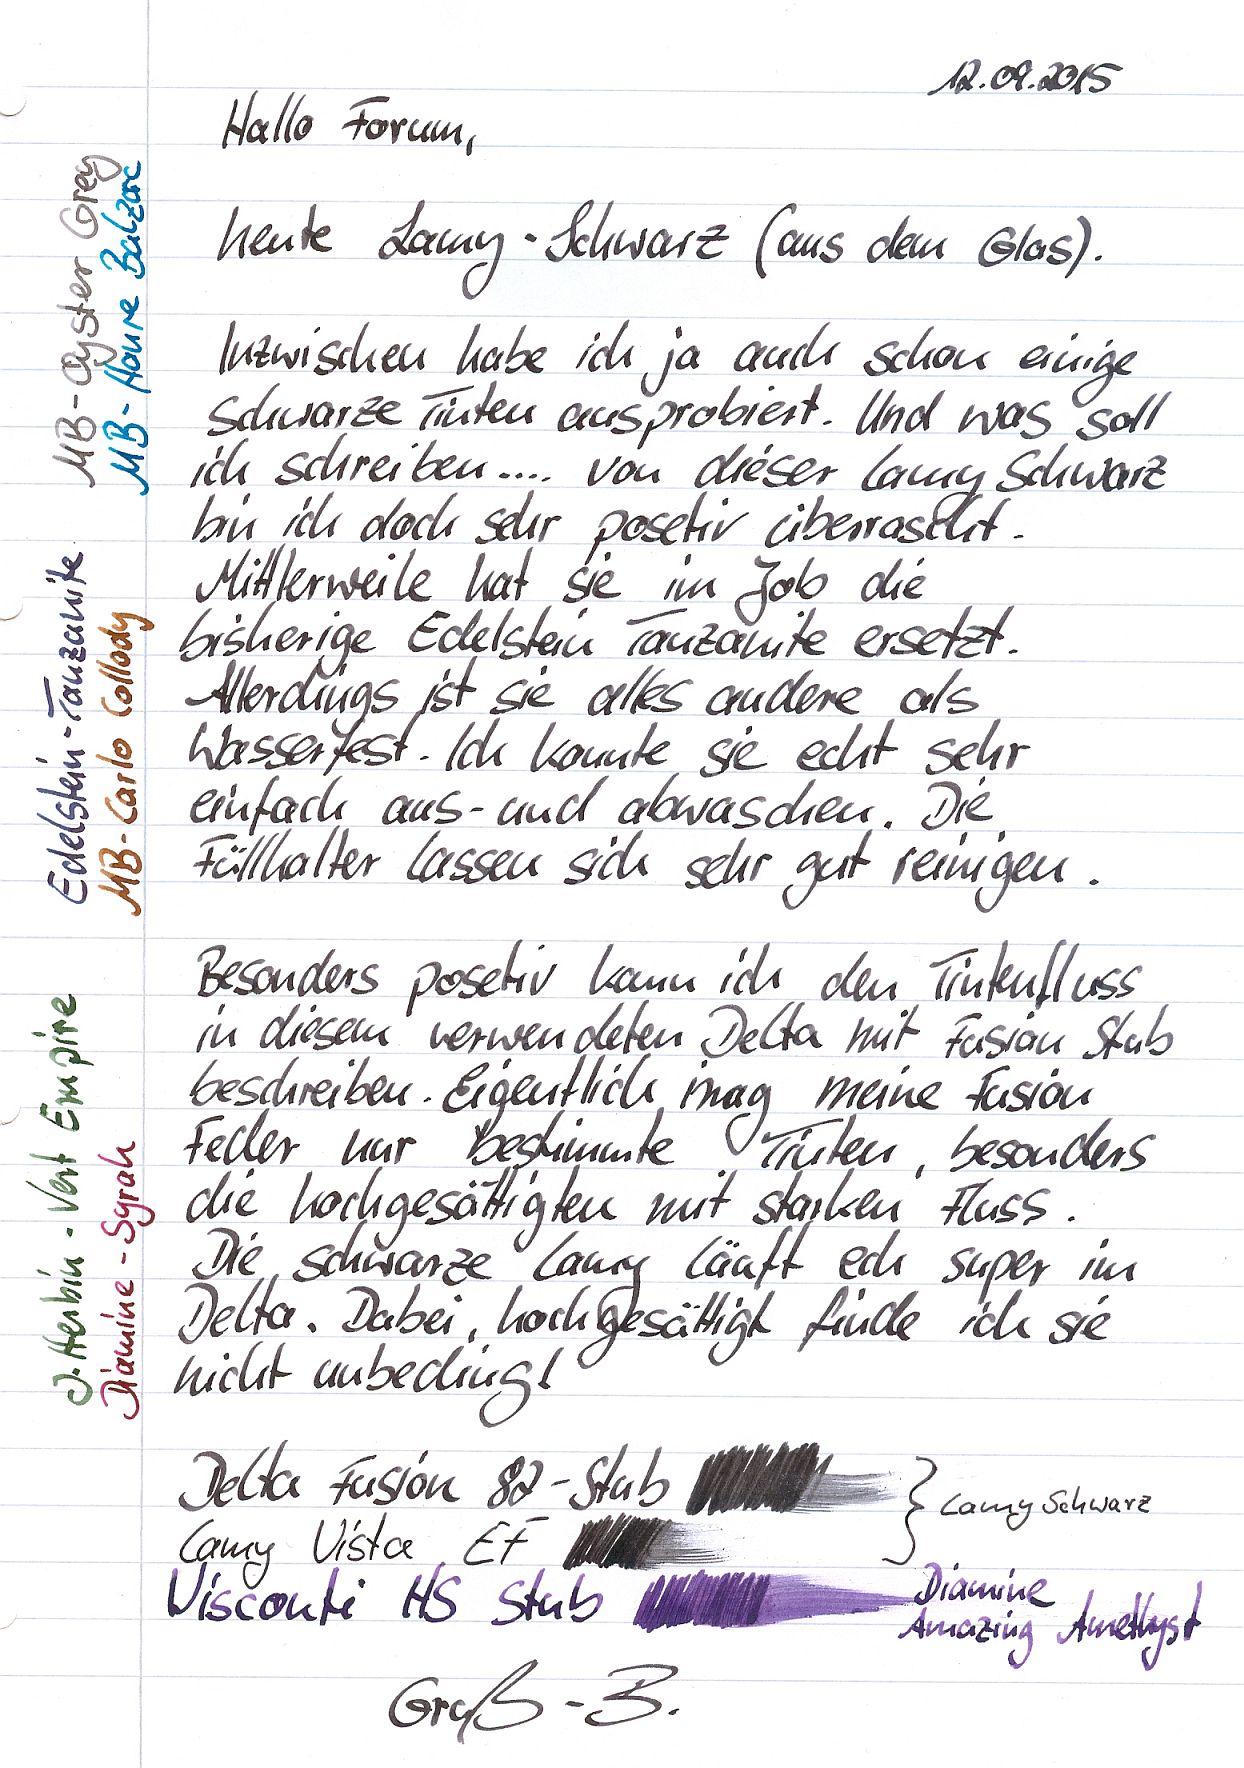 12.09.2015
Hallo Forum,
heute Lamy-Schwarz (aus dem Glas).
Inzwischen habe ich ja auch schon einige
schwarze Tinten ausprobiert. Und was soll
ich schreiben.... von dieser Lamy Schwarz
bin ich doch sehr posetiv überrascht.
Mittlerweile hat sie im Job die
bisherige Edelstein Tanzanite ersetzt.
Allerdings ist sie alles andere als
Wasserfest. Ich konnte sie echt sehr
einfach aus- und abwaschen. Die
Füllhalter lassen sich sehr gut reinigen.
Besonders posetiv kann ich den Tintenfluss
in diesem verwendeten Delta mit Fusion Stub
beschreiben. Eigentlich mag meine Fusion
Feder nur bestimmte Tinten, besonders
die hochgesättigten mit starken Fluss.
Die schwarze Lamy läuft ech super im
Delta. Dabei, hochgesättigt finde ich sie
nicht unbeding!
Delta Fusion 82-Stub
Lamy Vista EF
Lamy Schwarz
Visconti HS Stub
Diamine
Amazing Amethyst
Gruß - B.
MB-Oyster Grey
MB-Honre Balzac
Edelstein-Tanzanite
MB-Carlo Collody
J. Herbin - Vert Empire
Diamine - Syrah